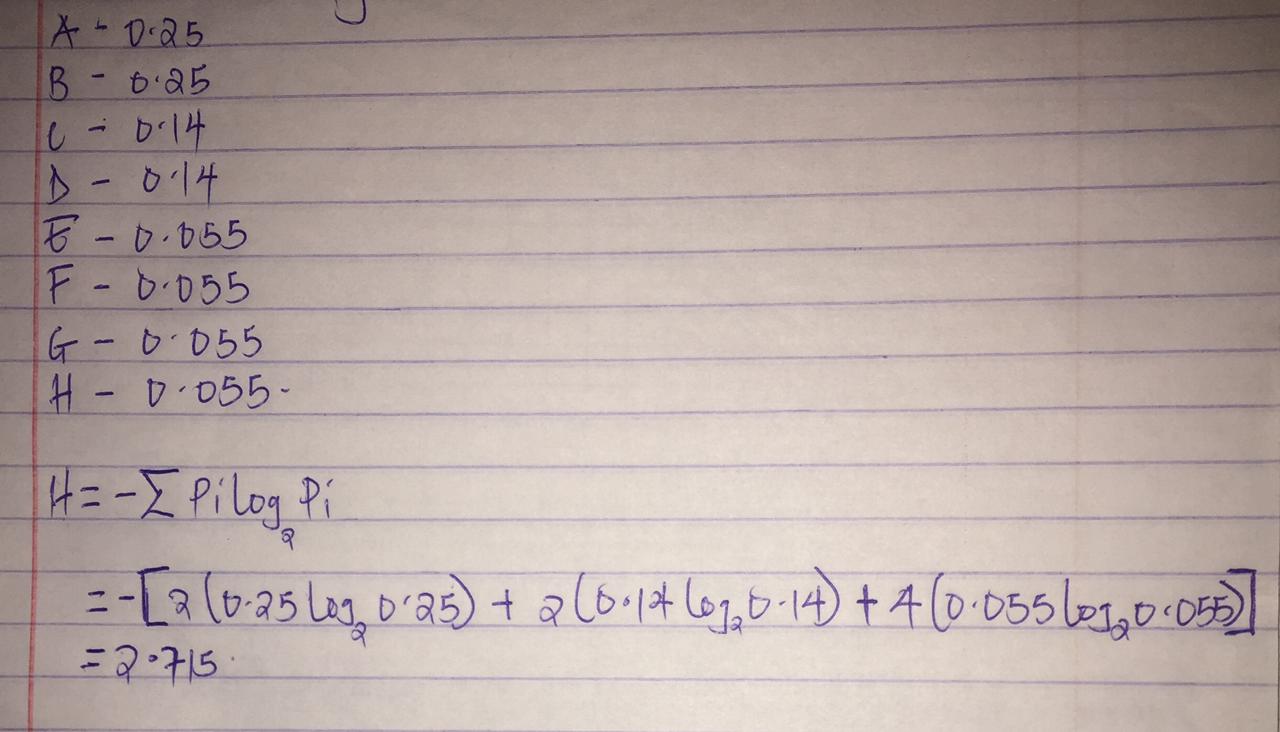 A - 0.25
B - 0.25
C - 0.14
D - 0.14
E - 0.055
F - 0.055
G - 0.055
H - 0.055.
H = -∑ Pi log₂ Pi
= -[2(0.25 log₂ 0.25) + 2(0.14 log₂ 0.14) + 4(0.055 log₂ 0.055)]
= 2.715.